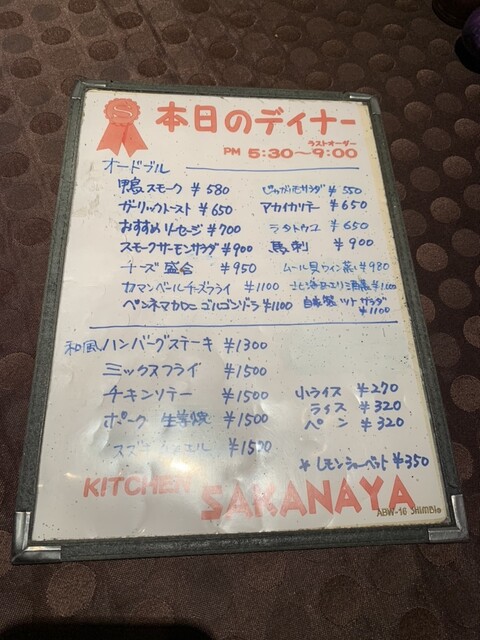 S
本日のディナー
ラストオーダー
PM 5:30～9:00
オードブル
鴨スモーク ¥580
じゃがいもサラダ ¥550
ガーリックトースト ¥650
アカイカソテー ¥650
おすすめソーセージ ¥700
ラタトウユ ¥650
スモークサーモンサラダ ¥900
馬刺 ¥900
チーズ盛合 ¥950
ムール貝ワイン蒸し ¥980
カマンベールチーズフライ ¥1100
ペンネマカロニゴルゴンゾーラ ¥1100
自家製ツナサラダ
¥1100
和風ハンバーグステーキ ¥1300
ミックスフライ ¥1500
チキンソテー ¥1500
小ライス ¥270
ポーク生姜焼 ¥1500
ライス ¥320
パン ¥320
¥1500
*レモンシャーベット ¥350
KITCHEN SAKANAYA
ABW-16 SHIMBI